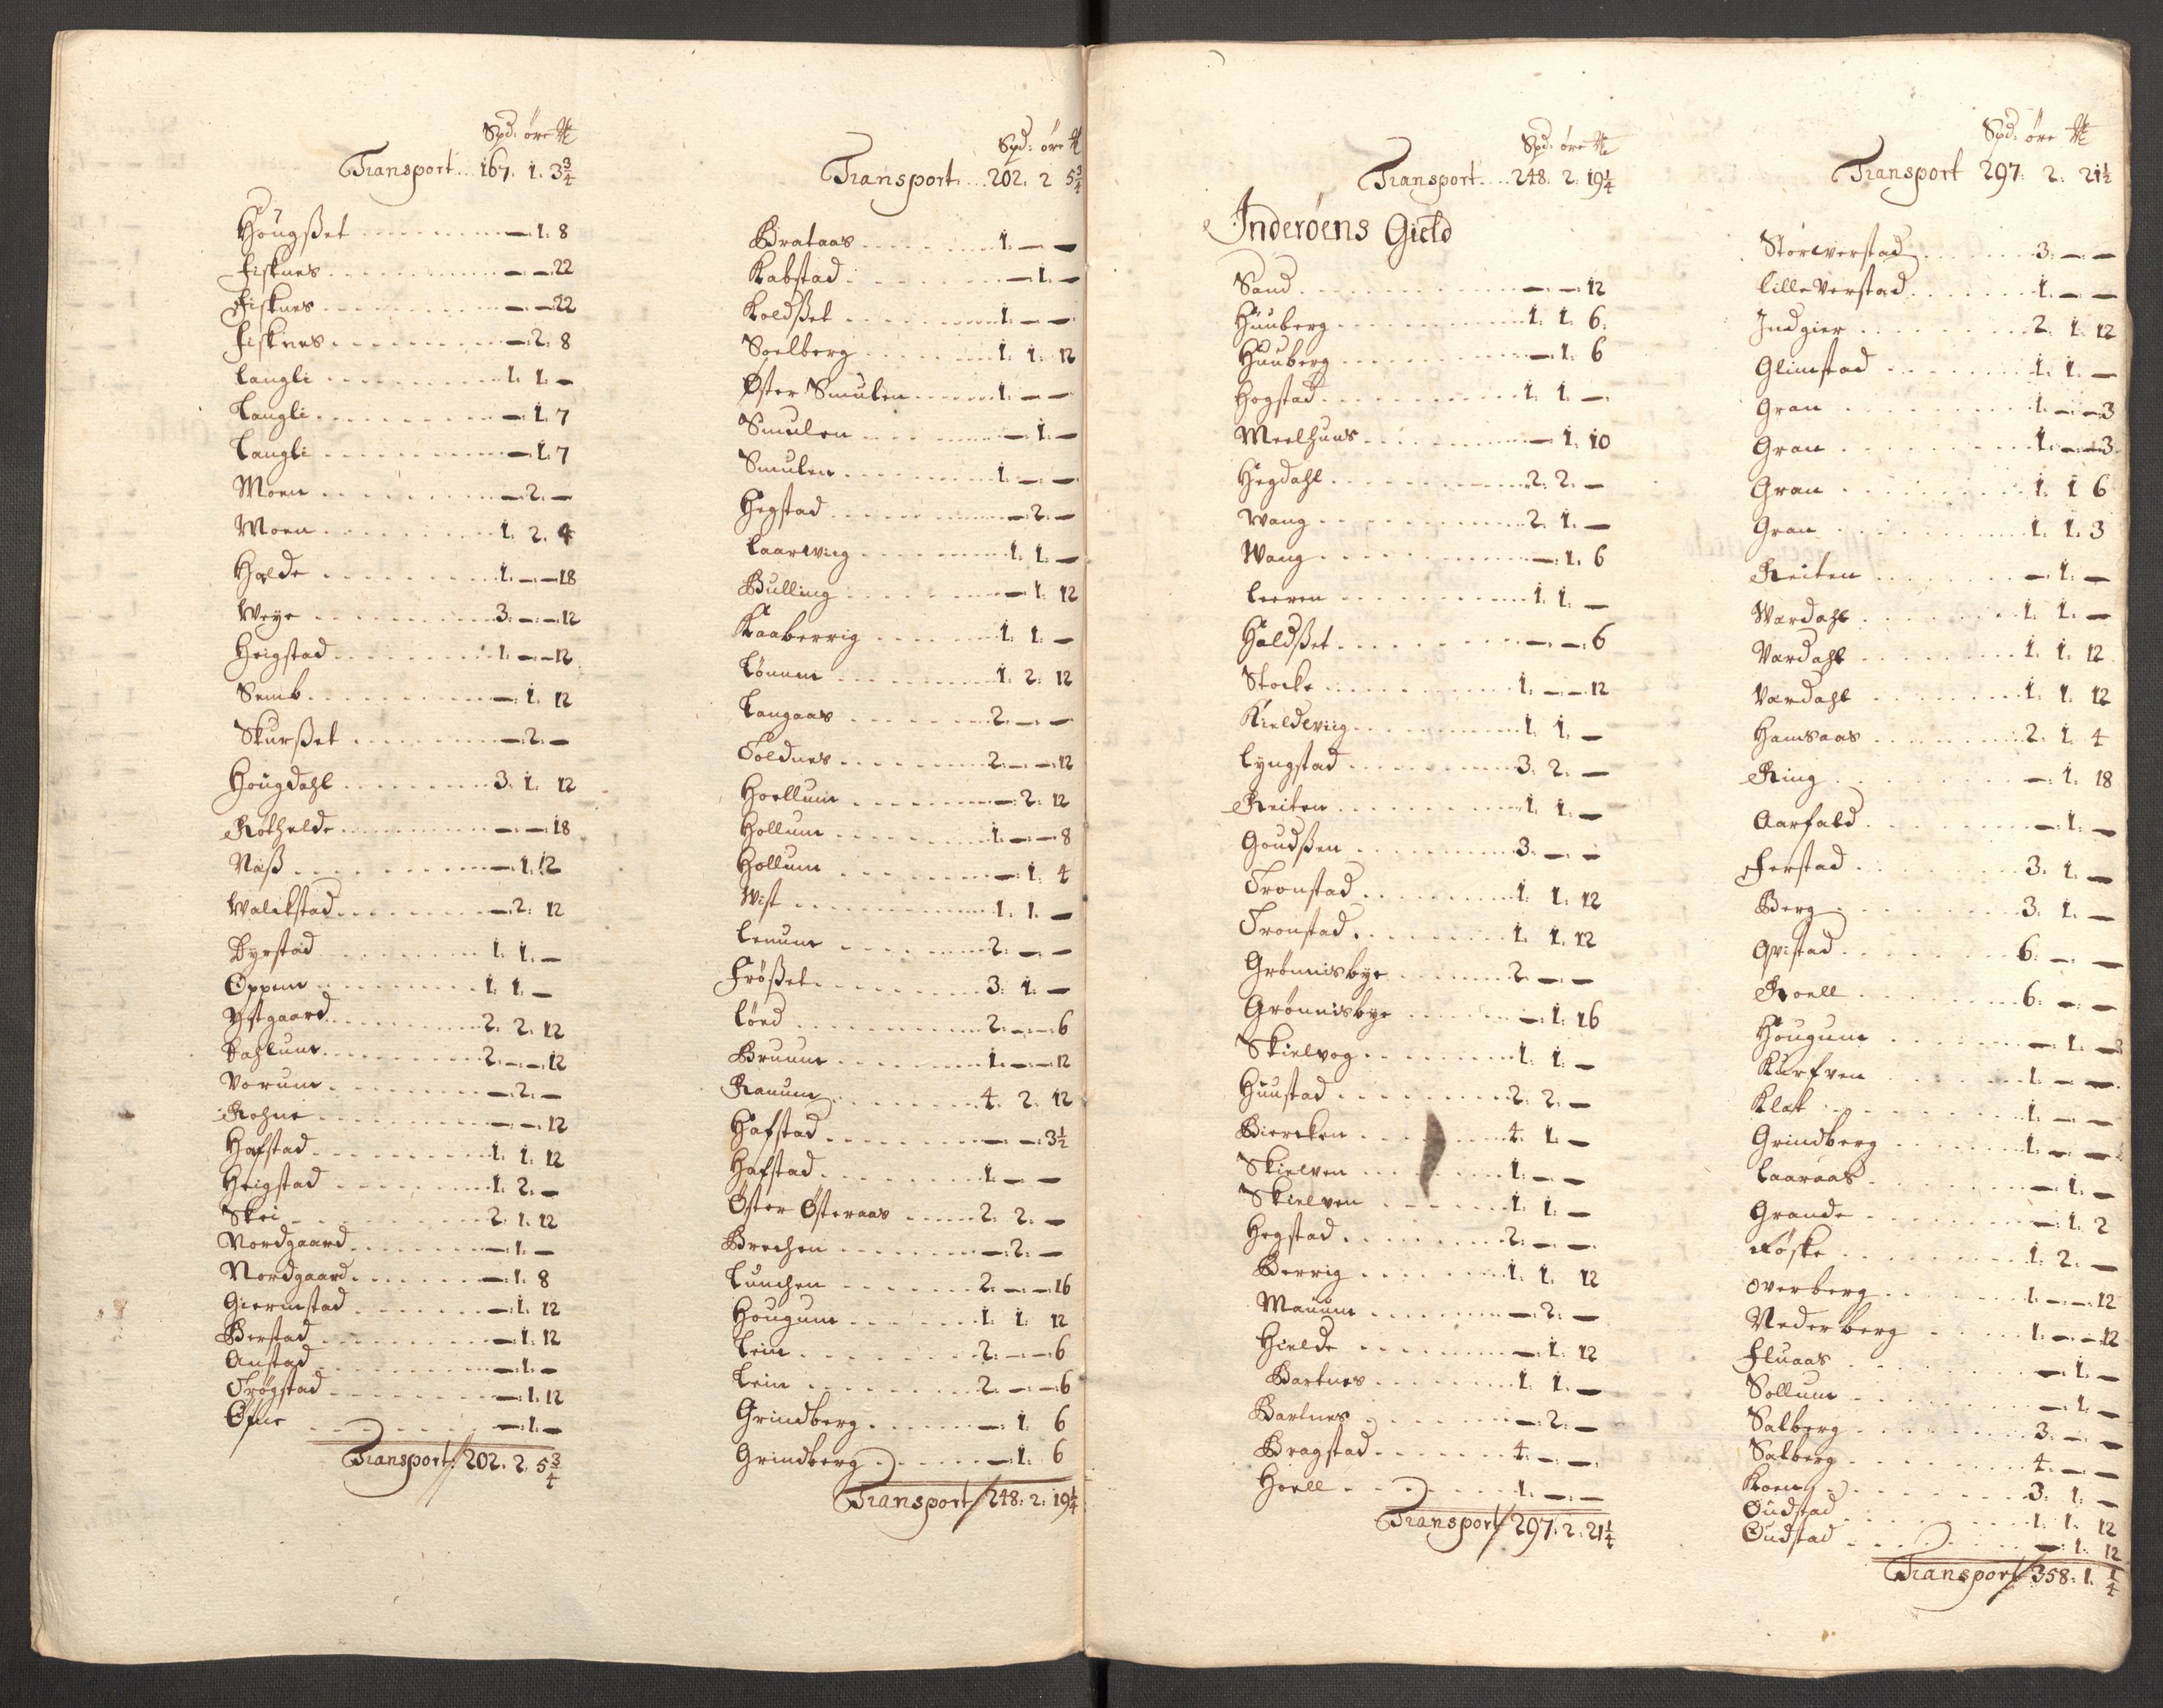 Spd: öre ₰
Transport... 167. 1. 3¾
Hougßet — 1. 8
Fisknes — — 22
Fisknes — — 22
Fisknes — 2. 8
Langli 1. 1. —
Langli — 1. 7
Langli — 1. 7
Moen — 2. —
Moen 1. 2. 4
Halde 1. — 18
Weye 3. — 12
Heigstad 1. — 12
Semb — 1. 12
Skurßet — 2. —
Hougdahl 3. 1. 12
Rothalde — — 18
Näß — 1. 12
Walekstad — 2. 12
Dyrstad 1. 1. —
Oppem 1. 1. —
Ystgaard 2. 2. 12
Dahlum 2. — 12
Vorum — 2. —
Rohne — — 12
Hafstad 1. 1. 12
Heigstad 1. 2. —
Skei 2. 1. 12
Nordgaard — 1. —
Nordgaard — 1. 8
Giermstad — 1. 12
Berstad — 1. 12
Anstad — 1. —
Trøgstad — 1. 12
Ofne — 1. —
Transport 202. 2. 5¾
Spd: öre ₰
Transport.... 202. 2 5¾
Brataas 1. — —
Kabstad — 1. —
Koldßet 1. — —
Soelberg 1. 1. 12
Øster Smulen 1. — —
Smulen — 1. —
Smulen 1. — —
Hegstad — 2. —
Laarwiig 1. 1. —
Bulling — 1. 12
Kaaberrig 1. 1. —
Lönnem 1. 2. 12
Langaas 2. — —
Toldnes 2. — 12
Hoellum — 2. 12
Hollum 1. — 8
Hollum — 1. 4
Wist 1. 1. —
Lenum 2. — —
Frößet 3. 1. —
Lörd 2. — 6
Bruum 1. — 12
Ranum 4. 2. 12
Hafstad — — 3½
Hafstad 1. — —
Øster Østeraas 2. 2. —
Brechen — 2. —
Lunchen 2. — 16
Hougum 1. 1. 12
Lein 2. — 6
Lein 2. — 6
Grindberg — 1. 6
Grindberg — 1. 6
Transport 248: 2: 19¼
Spd: öre ₰
Transport.... 248. 2. 19¼
Inderöens Gield
Sand — — 12
Huuberg 1. 1. 6.
Huuberg — 1. 6
Hogstad 1. 1. —
Meelhuus — 1. 10
Hegdahl 2. 2. —
Wang 2. 1. —
Wang — 1. 6
Leeren 1. 1. —
Haldßet — — 6
Stocke 1. — 12
Kieldwiig 1. 1. —
Lyngstad 3. 2. —
Reiten 1. 1. —
Goudßen 3. — —
Tronstad 1. 1. 12
Tronstad 1. 1. 12
Grönnisbye 2. — —
Grönnisbye — 1. 16
Skielvog 1. 1. —
Huustad 2. 2. —
Biercken 4. 1. —
Skielven 1. — —
Skielven 1. 1. —
Hegstad 2. — —
Berrig 1. 1. 12
Maüum — 2. —
Hielde — 1. 12
Bartnes 1. 1. —
Bartnes — 2. —
Bragstad 4. — —
Hoell 1. — —
Transport 297. 2. 21¼
Spd: öre ₰
Transport 297. 2. 21½
Storeverstad 3. — —
Lille Verstad 1. — —
Indgier 2. 1. 12
Glimstad 1. 1. —
Gran 1. — 3
Gran 1. — 3
Gran 1. 1 6
Gran 1. 1. 3
Reiten — 1. —
Wardahl 1. 1. —
Vardahl 1. 1. 12
Vardahl 1. 1. 12
Hamsaas 2. 1 4
Ring — 1. 18
Aarfald — 1. —
Ferstad 3. 1. —
Berg 3. 1. —
Qvistad 6. — —
Roell 6. — —
Hougum — 1. —
Kurfven 1. — —
Klat 1. — —
Grindberg 1. — —
Laaraas — 1. —
Grande — 1. 2
Röske 1. 2. —
Overberg 1. — 12
Nederberg 1. — 12
Fluaas — 1. —
Sollum — 1. —
Salberg 3. — —
Salberg 4. — —
Koem 3. 1. —
Oudstad 1. 1. 12
Oudstad — 1. 12
Transport 358. 1. ¼